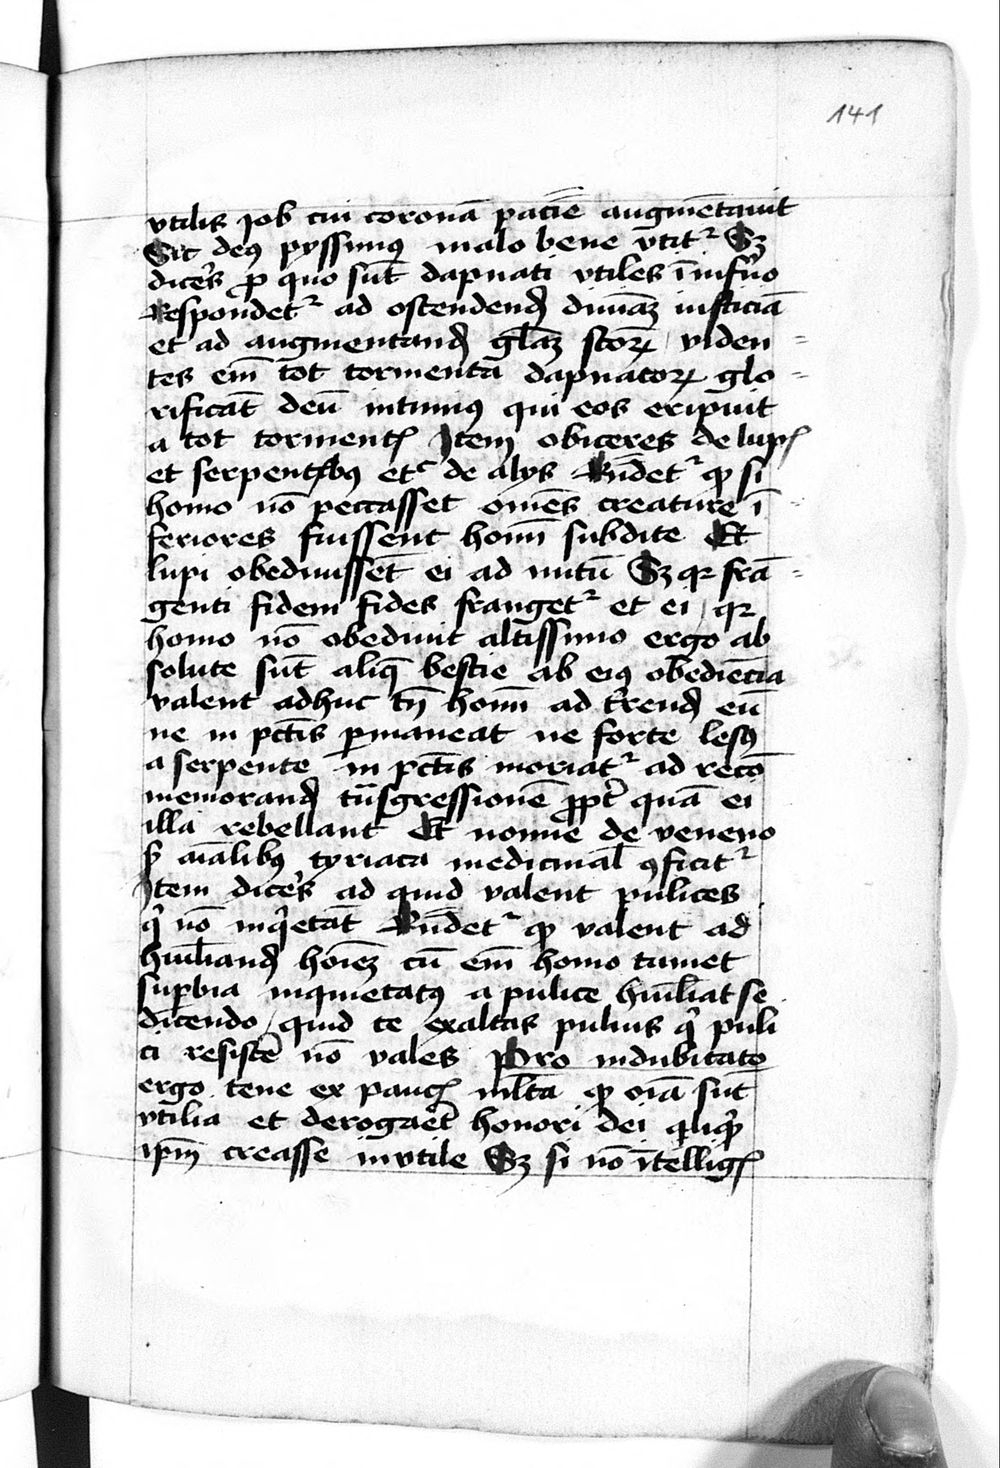 141
vtilis Job cui coronā paciē augmētauit
Sic deꝰ pyssimꝰ malo bene vtitᷣ Sꝫ
dicēs ꝓ quo sūt dapnati vtiles ī inf̄no
Respondetᷣ ad ostendendū diuinā iusticiā
et ad augmentandū gl̄aꝫ sctoꝝ / viden=
tes em̄ tot tormenta dapnatoꝝ glo=
rificāt deū intimiꝰ qui eos eripuit
a tot tormentꝭ Jtem obiceres de lupꝭ
et serpentibꝰ etc̄ de alijs Rn̄detᷣ ꝙ si
homo nō peccasset omēs creature ī=
feriores fuissent homī subdite Et
lupi obediuissēt ei ad nutū Sꝫ qꝛ frā=
genti fidem fides frangetᷣ et ei / qꝛ
homo nō obediuit altissimo ergo ab
solute sūt aliq̄ bestie ab eiꝰ obediēcia
valent adhuc tn̄ homī ad t̄rendū eū
ne in pctīs ꝑmaneat ne forte lesꝰ
a serpente in pctīs moriatᷣ ad recō
memorandū tūsgressionē ꝓpt̄ quā ei
illa rebellant Et nonne de veneno
ſ̄ aīalibꝰ tyriaca medicinal̄ ꝯficitᷣ
Jtem dicēs ad quid valent pulices
qͥ nō inqͥetāt Rn̄detᷣ ꝙ valent ad
humiliandū hoīeꝫ cū em̄ homo tumet
suꝑbia inquietatꝰ a pulice humiliat se
dicendo / quid te exaltas puluis qͥ puli
ci resistē nō vales Pro indubitato
ergo tene ex paucꝭ ml̄ta ꝙ oīa sūt
vtilia et derogaēt honori dei qͥliqͥꝺ
ipm̄ creasse invtile Sꝫ si nō ītelligꝭ